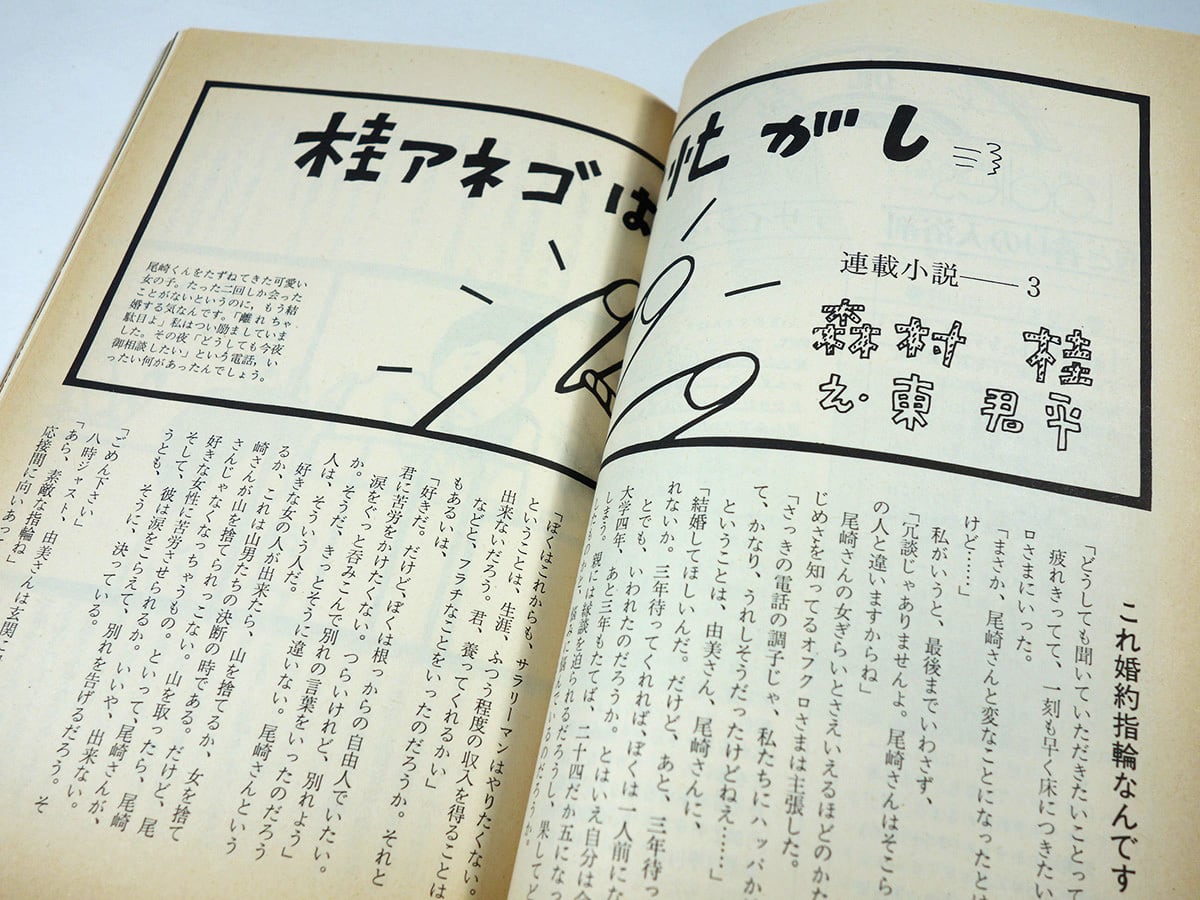 桂アネゴは忙がし
連載小説——3
森村 桂
え・東 君平
尾崎くんをたずねてきた可愛い
女の子。たった二回しか会った
ことがないというのに、もう結
婚する気なんです。「離れちゃ
駄目よ」私はつい励ましていま
した。その夜「どうしても今夜
御相談したい」という電話、い
ったい何があったんでしょう。
これ婚約指輪なんです
「どうしても聞いていただきたいことって
疲れきってて、一刻も早く床につきたい
ロさまにいった。
「まさか、尾崎さんと変なことになったとは
けど……」
私がいうと、最後までいわさず、
「冗談じゃありませんよ。尾崎さんはそこら
の人と違いますからね」
尾崎さんの女ぎらいとさえいえるほどのかた
じめさを知ってるオフクロさまは主張した。
「さっきの電話の調子じゃ、私たちにハッパか
て、かなり、うれしそうだったけどねえ……」
ということは、由美さん、尾崎さんに、
「結婚してほしいんだ。だけど、あと、三年待っ
れないか。三年待ってくれれば、ぼくは一人前にな
とでも、いわれたのだろうか。とはいえ自分は今
大学四年、あと三年もたてば、二十四だか五になっ
しまう。親には縁談を迫られるだろうし、果してど
「ぼくはこれからも、サラリーマンはやりたくない。
ということは、生涯、ふつう程度の収入を得ることは
出来ないだろう。君、養ってくれるかい」
などと、フラチなことをいったのだろうか。それと
もあるいは、
「好きだ。だけど、ぼくは根っからの自由人でいたい。
君に苦労をかけたくない。つらいけれど、別れよう」
涙をぐっと呑みこんで別れの言葉をいったのだろう
か。そうだ、きっとそうに違いない。尾崎さんという
人は、そういう人だ。
好きな女の人が出来たら、山を捨てるか、女を捨て
るか、これは山男たちの決断の時である。だけど、尾
崎さんが山を捨てられっこない。山を取ったら、尾崎
さんじゃなくなっちゃうもの。といって、尾崎さんが、
好きな女性に苦労させられるか。いいや、出来ない。
そして、彼は涙をこらえて、別れを告げるだろう。そ
うとも、そうに、決っている。
「ごめん下さい」
八時ジャスト、由美さんは玄関に
「あら、素敵な指輪ね」
応接間に向いあっ